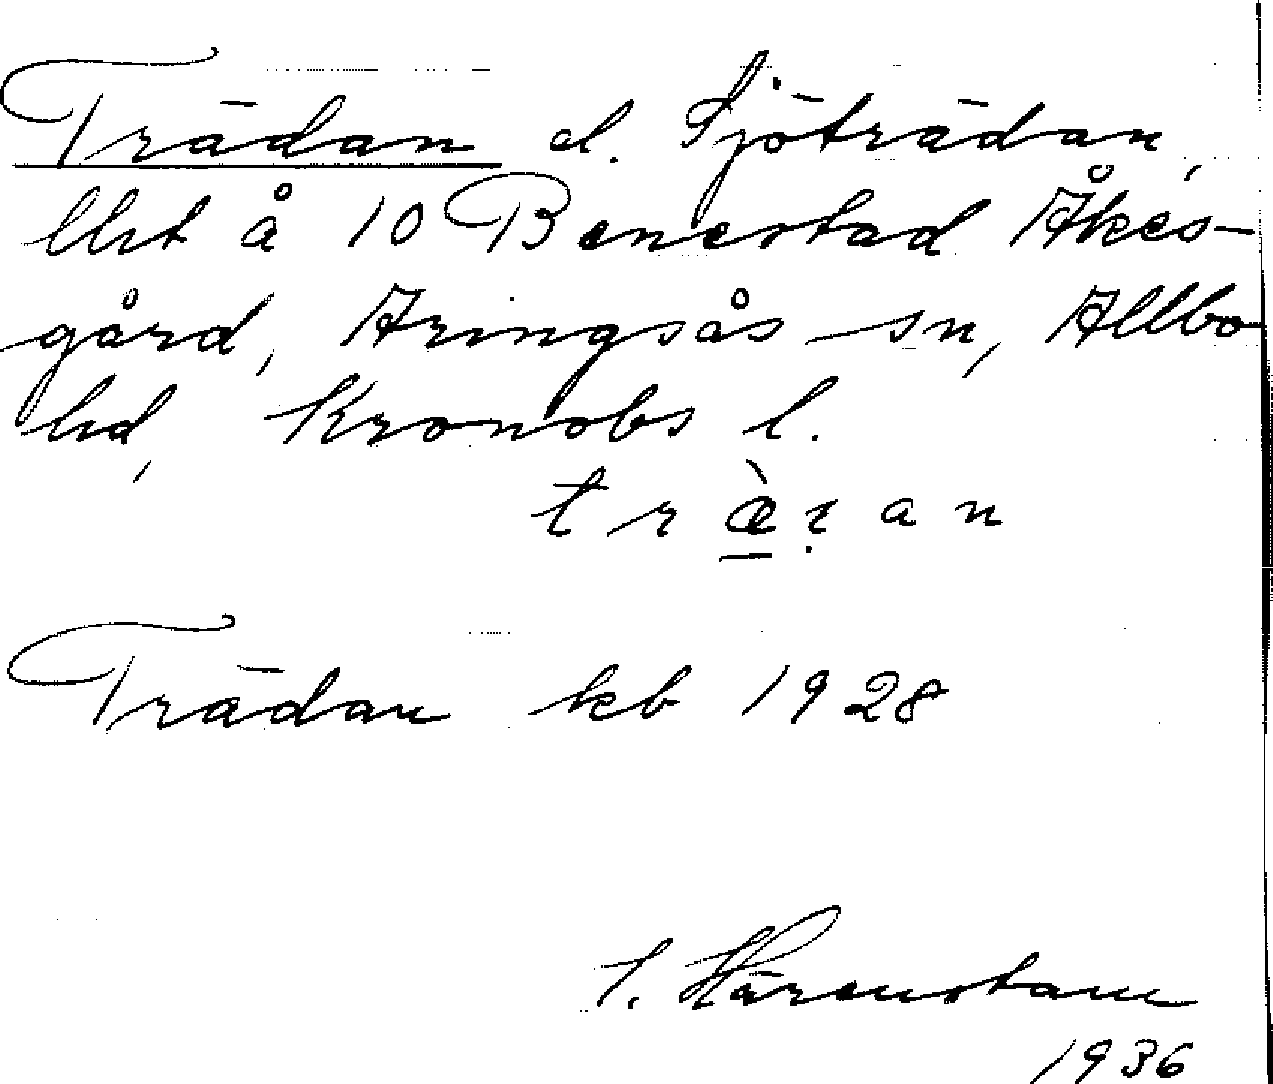 Trädan el. Sjöträdan,
lht å 10 Benestad Åkes-
gård, Aringsås sn, Allbo
hd, Kronobs l.
træ̀ɀan
Trädan kb 1928
1936